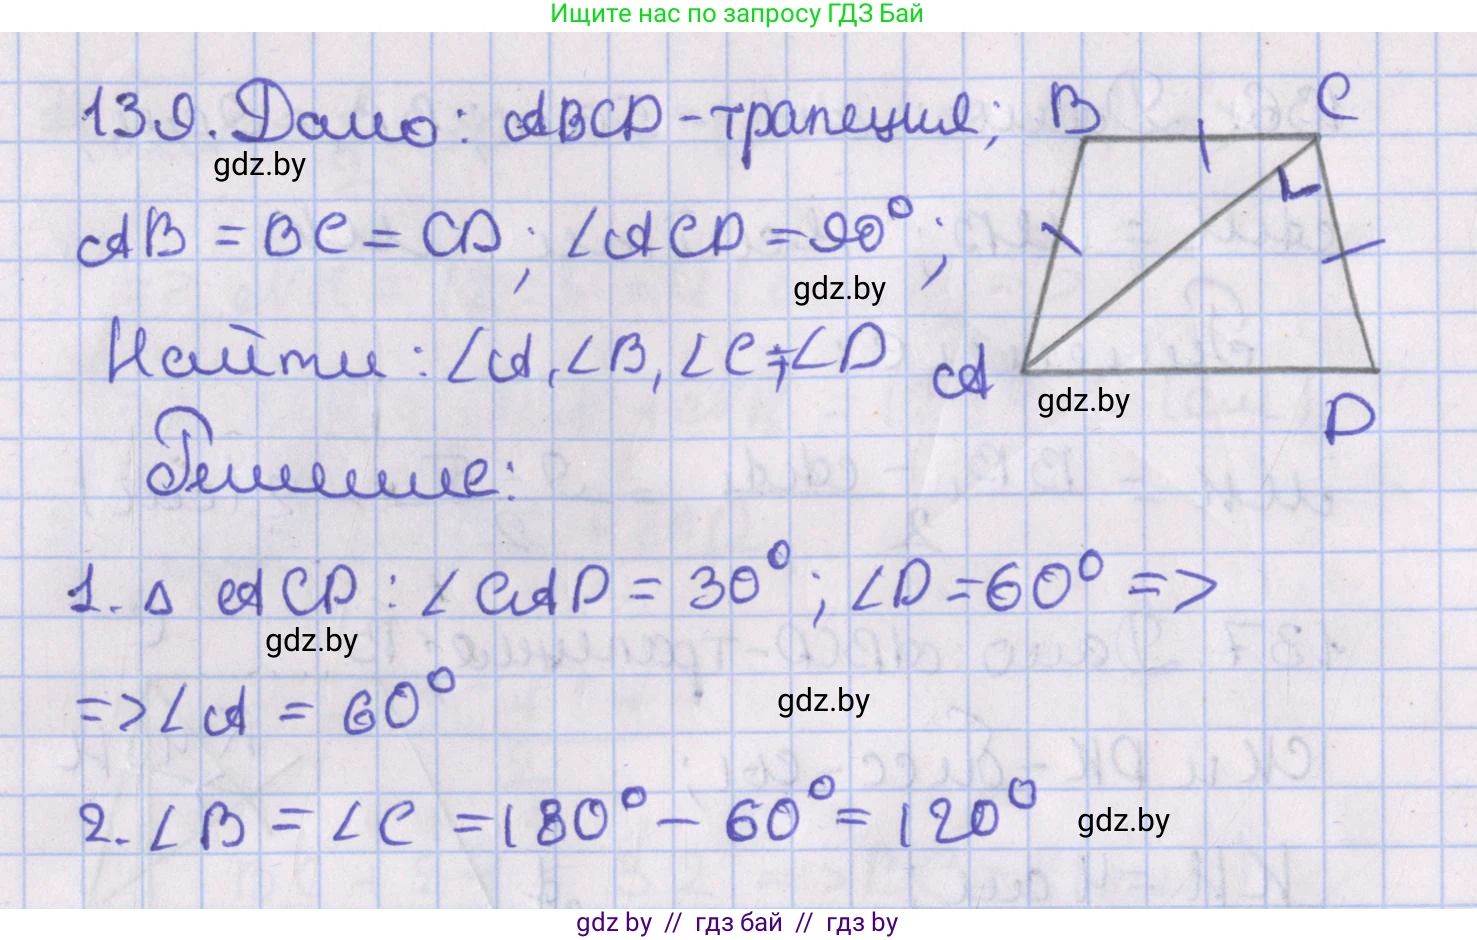 Ищите нас по запросу ГДЗ Бай
139. Дано: ABCD - трапеция;
gdz.by
B C
AB = BC = CD; ∠ACD = 90°;
gdz.by
Найти: ∠A, ∠B, ∠C, ∠D
A
gdz.by
D
Решение:
1. Δ ACD: ∠CAD = 30°; ∠D = 60° =>
gdz.by
=> ∠A = 60°
gdz.by
2. ∠B = ∠C = 180° - 60° = 120°
gdz.by
gdz by // гдз бай // гдз by